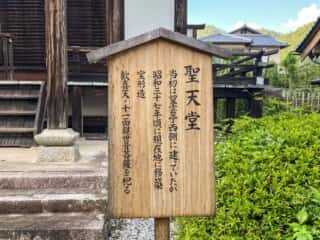 聖天堂
当初は望雲亭西側に建っていたが
昭和三十七年頃に現在地に移築
宝形造
歓喜天・十一面観世音菩薩を祀る